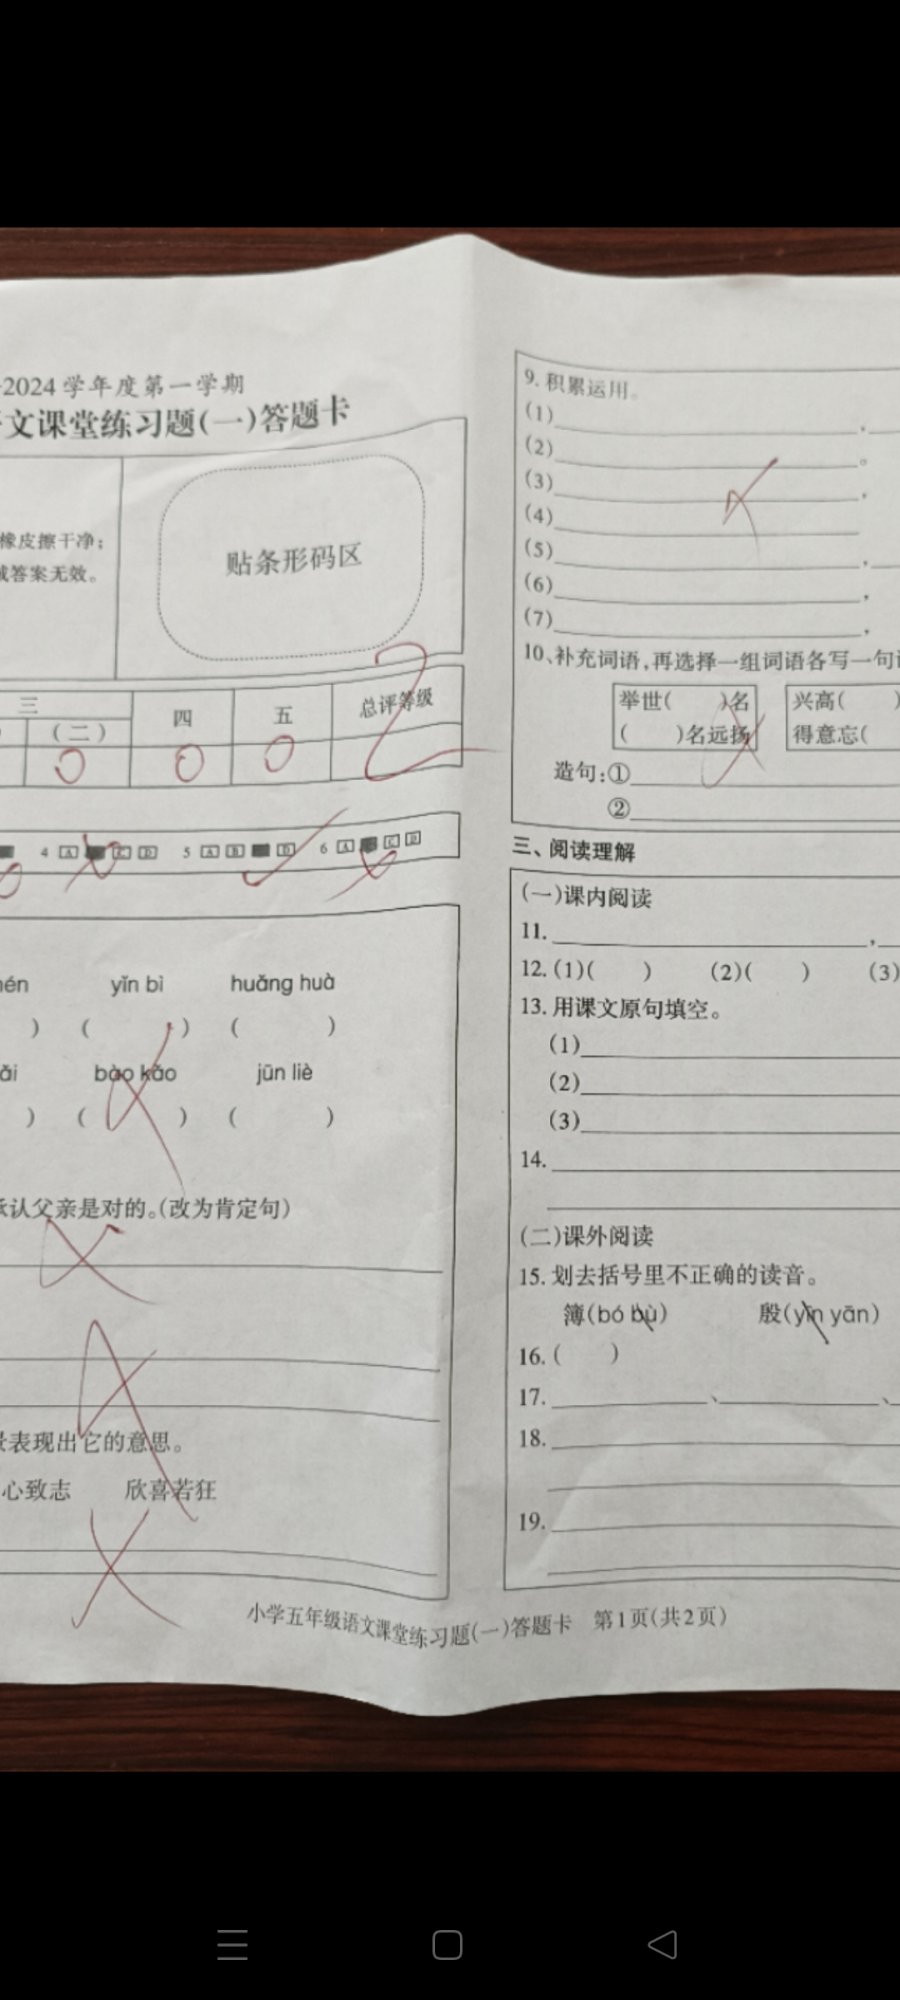 -2024学年度第一学期
语文课堂练习题(一)答题卡
橡皮擦干净;
域答案无效。
贴条形码区
三 四 五 总评等级
(二)
0 0 0 2
4 A C D 5 A B D 6 A C D
yǐn bì huǎng huà
) ( ) ( )
bào kǎo jūn liè
) ( ) ( )
承认父亲是对的。(改为肯定句)
景表现出它的意思。
心致志 欣喜若狂
9. 积累运用。
(1) ,
(2) 。
(3) ,
(4)
(5) ,
(6) ,
(7) ,
10、补充词语,再选择一组词语各写一句
举世( )名 兴高( )
( )名远扬 得意忘(
造句:①
②
三、阅读理解
(一)课内阅读
11. ,
12. (1)( ) (2)( ) (3)
13. 用课文原句填空。
(1)
(2)
(3)
14.
(二)课外阅读
15. 划去括号里不正确的读音。
簿(bó bù) 殷(yīn yān)
16. ( )
17. 、 、
18.
19.
小学五年级语文课堂练习题(一)答题卡 第1页(共2页)